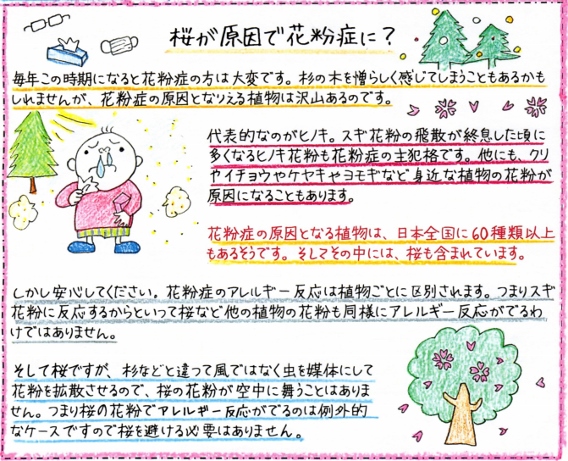 桜が原因で花粉症に？
毎年この時期になると花粉症の方は大変です。杉の木を憎らしく感じてしまうこともあるかも
しれませんが、花粉症の原因となりえる植物は沢山あるのです。
代表的なのがヒノキ。スギ花粉の飛散が終息した頃に
多くなるヒノキ花粉も花粉症の主犯格です。他にも、クリ
やイチョウやケヤキやヨモギなど身近な植物の花粉が
原因になることもあります。
花粉症の原因となる植物は、日本全国に60種類以上
もあるそうです。そしてその中には、桜も含まれています。
しかし安心してください，花粉症のアレルギー反応は植物ごとに区別されます。つまりスギ
花粉に反応するからといって桜など他の植物の花粉も同様にアレルギー反応がでるわ
けではありません。
そして桜ですが、杉などと違って風ではなく虫を媒体にして
花粉を拡散させるので、桜の花粉が空中に舞うことはありま
せん。つまり桜の花粉でアレルギー反応がでるのは例外的
なケースですので桜を避ける必要はありません。